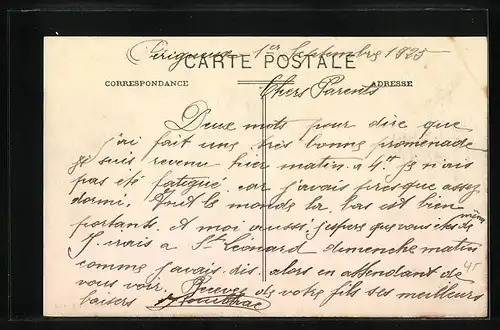 Périgueux 1er Septembre 1925
CARTE POSTALE
CORRESPONDANCE
ADRESSE
Chers Parents
Deux mots pour dire que
j'ai fait une très bonne promenade
je suis revenu hier matin à 4h je n'ais
pas été fatigué car j'avais presque assez
dormi. Tout le monde la bas est bien
portants. A moi aussi j'espère que vous êtes de
même
J'irais à St Léonard dimenche matin
comme j'avais dis. alors en attendant de
vous voir. Recevez de votre fils ses meilleurs
baisers
45